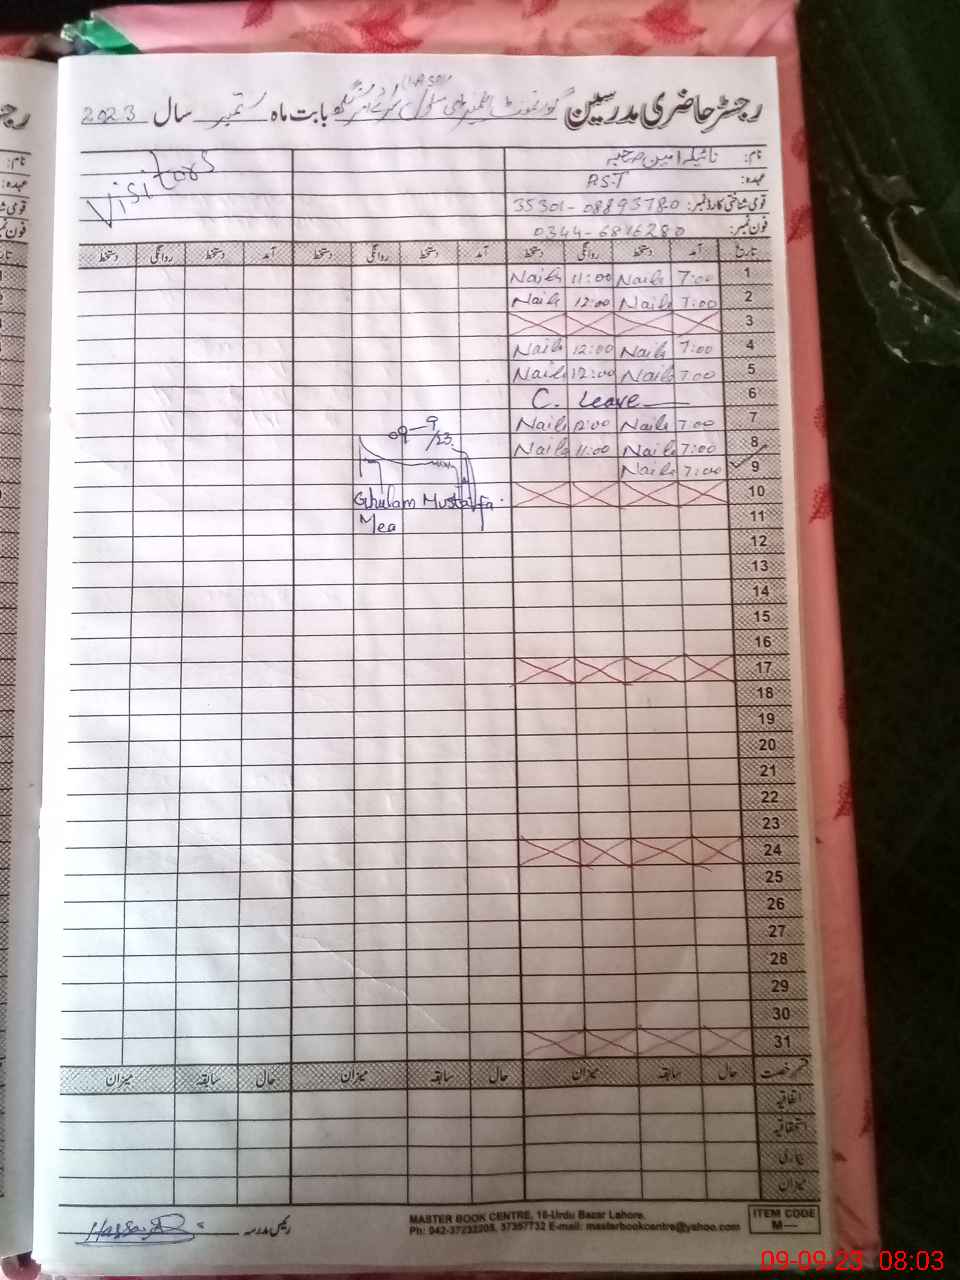 رجسٹر حاضری مدرسین گورنمنٹ بابت ماہ ستمبر سال 2023
نام:
عہدہ: P.S.T
قومی شناختی کارڈ نمبر: 35301-0889378-0
فون نمبر: 0344-6816280
Visitors
تاریخ آمد دستخط روانگی دستخط آمد دستخط روانگی دستخط آمد دستخط روانگی دستخط
1 7:00 Naila 11:00 Naila
2 7:00 Naila 12:00 Naila
3
4 7:00 Naila 12:00 Naila
5 7:00 Naila 12:00 Naila
6 C. Leave
7 7:00 Naila 12:00 Naila
8 7:00 Naila 11:00 Naila
9 7:00 Naila
09-9/23
10
Ghulam Mustafa
11
Mea
12
13
14
15
16
17
18
19
20
21
22
23
24
25
26
27
28
29
30
31
قسم رخصت حال سابقہ میزان حال سابقہ میزان حال سابقہ میزان
اتفاقیہ
استحقاقیہ
بیماری
میزان
رئیس مدرسہ
MASTER BOOK CENTRE, 16-Urdu Bazar Lahore.
Ph: 042-37232205, 37357732 E-mail: masterbookcentre@yahoo.com
ITEM CODE
M—
09-09-23 08:03